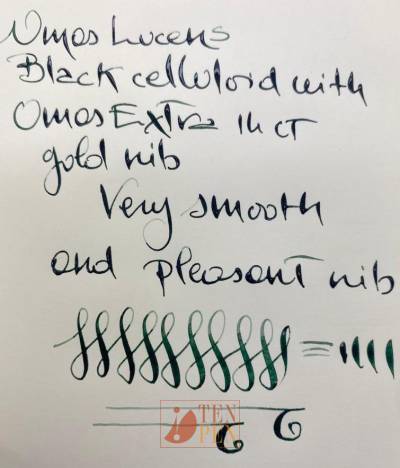 Omas Lucens
Black celluloid with
Omas Extra 14 CT
gold nib
Very smooth
and pleasant nib
TEN
PEN